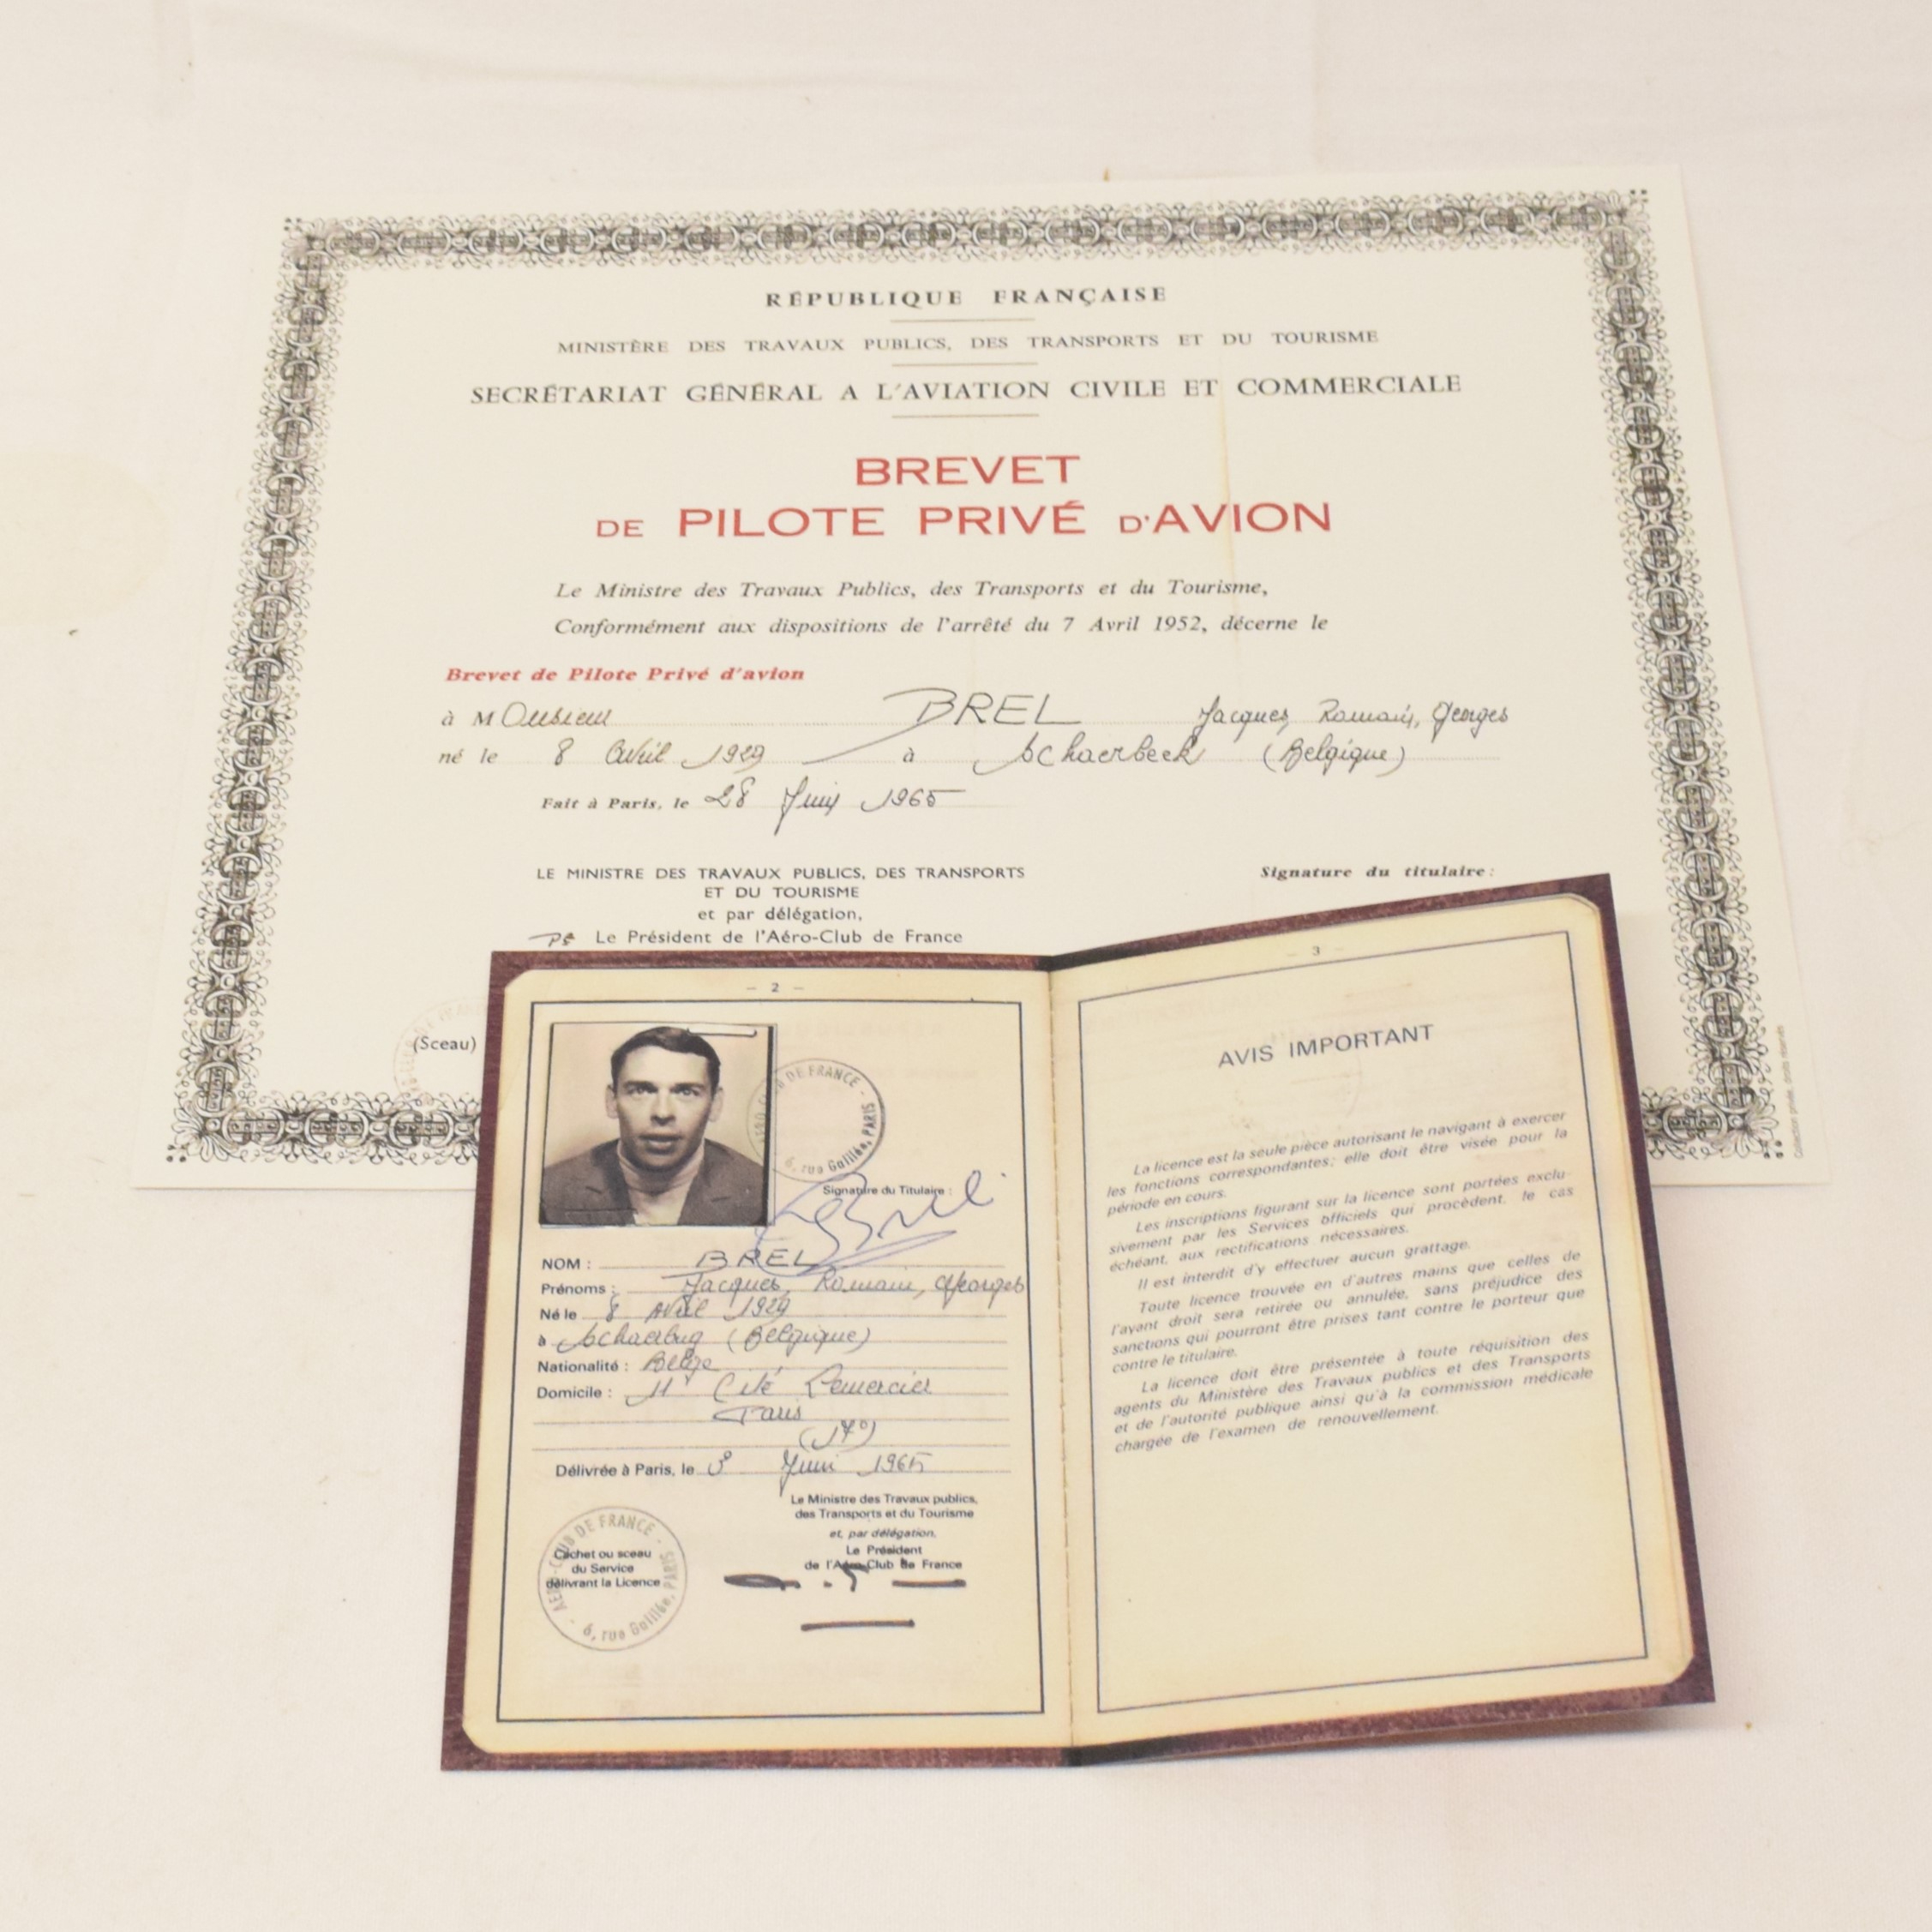 RÉPUBLIQUE FRANÇAISE
MINISTÈRE DES TRAVAUX PUBLICS, DES TRANSPORTS ET DU TOURISME
SECRÉTARIAT GÉNÉRAL A L'AVIATION CIVILE ET COMMERCIALE
BREVET
DE PILOTE PRIVÉ D'AVION
Le Ministre des Travaux Publics, des Transports et du Tourisme,
Conformément aux dispositions de l'arrêté du 7 Avril 1952, décerne le
Brevet de Pilote Privé d'avion
à Monsieur BREL Jacques, Romain, Georges
né le 8 Avril 1929 à Schaerbeek (Belgique)
Fait à Paris, le 28 Juin 1965
LE MINISTRE DES TRAVAUX PUBLICS, DES TRANSPORTS
ET DU TOURISME
et par délégation,
Le Président de l'Aéro-Club de France
Signature du titulaire :
(Sceau)
Collection privée, droits réservés
— 2 —
DE FRANCE
6, rue Galilée, PARIS
Signature du Titulaire :
Brel
NOM : BREL
Prénoms : Jacques, Romain, Georges
Né le 8 Avril 1929
à Schaerbug (Belgique)
Nationalité : Belge
Domicile : 11 Cité Lemercier
Paris
(17°)
Délivrée à Paris, le 3 Juin 1965
Le Ministre des Travaux publics,
des Transports et du Tourisme
et, par délégation,
Le Président
de l'Aéro-Club de France
AERO-CLUB DE FRANCE - 6, rue Galilée, PARIS
Cachet ou sceau
du Service
délivrant la Licence
— 3 —
AVIS IMPORTANT
La licence est la seule pièce autorisant le navigant à exercer
les fonctions correspondantes; elle doit être visée pour la
période en cours.
Les inscriptions figurant sur la licence sont portées exclu-
sivement par les Services officiels qui procèdent, le cas
échéant, aux rectifications nécessaires.
Il est interdit d'y effectuer aucun grattage.
Toute licence trouvée en d'autres mains que celles de
l'ayant droit sera retirée ou annulée, sans préjudice des
sanctions qui pourront être prises tant contre le porteur que
contre le titulaire.
La licence doit être présentée à toute réquisition des
agents du Ministère des Travaux publics et des Transports
et de l'autorité publique ainsi qu'à la commission médicale
chargée de l'examen de renouvellement.